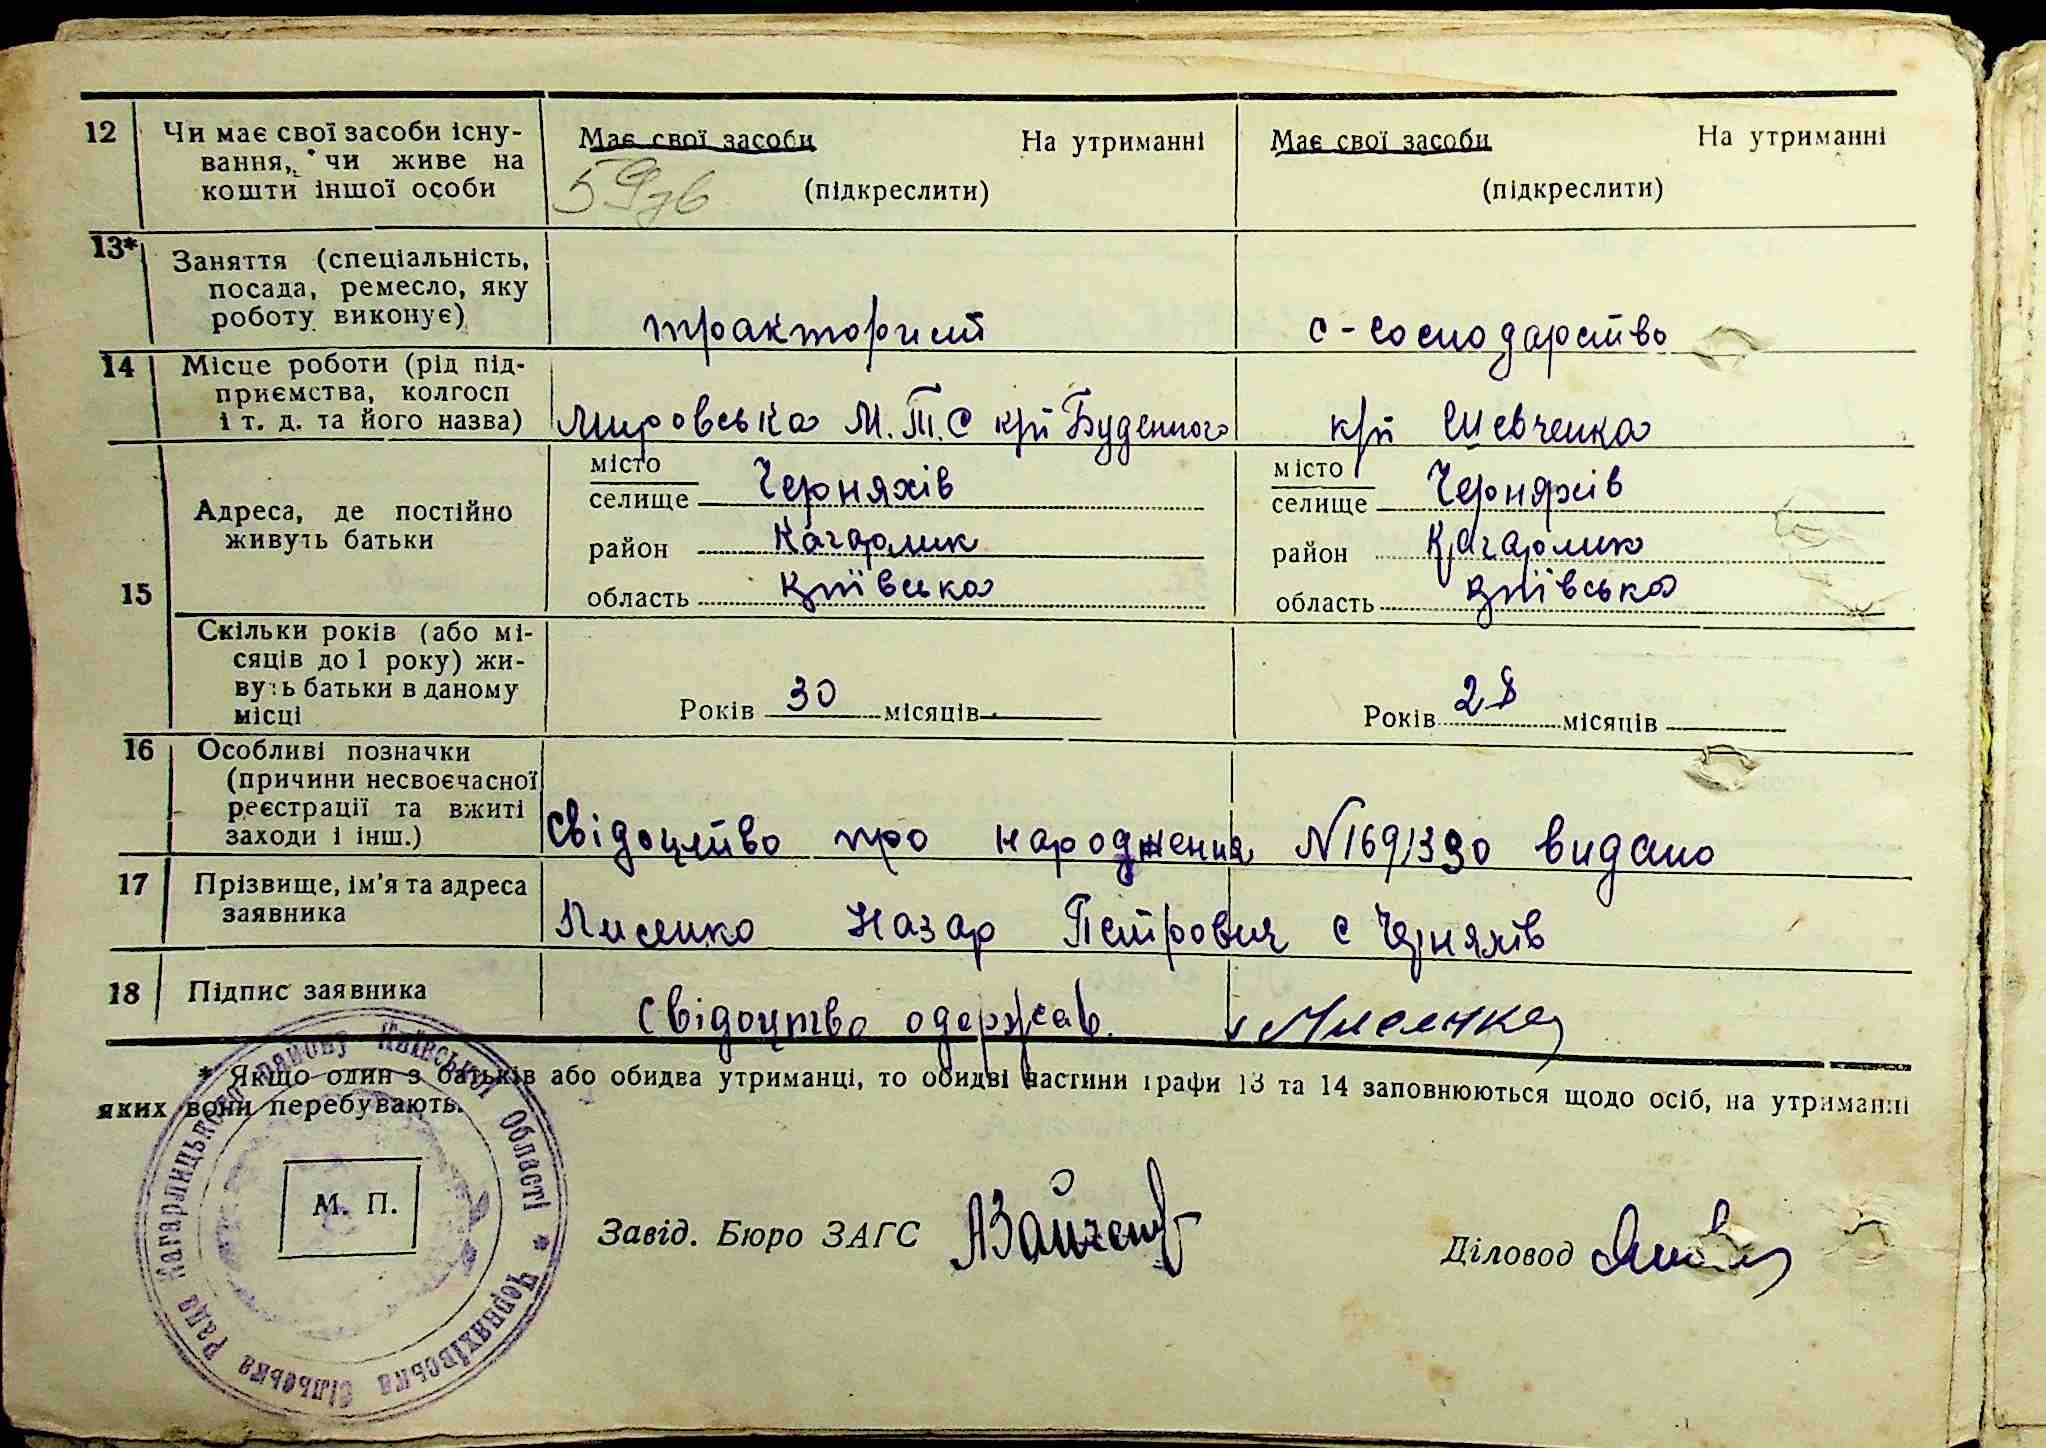 12 Чи має свої засоби існу-
вання, чи живе на
кошти іншої особи
Має свої засоби На утриманні
(підкреслити)
Має свої засоби На утриманні
(підкреслити)
13* Заняття (спеціальність,
посада, ремесло, яку
роботу виконує)
тракторист
с-господарство
14 Місце роботи (рід під-
приємства, колгосп
і т. д. та його назва)
Мировська М.Т.С крп Буденного
крп Шевченка
15 Адреса, де постійно
живуть батьки
місто
селище Черняхів
район Кагарлик
область Київська
місто
селище Черняхів
район Кагарлик
область Київська
Скільки років (або мі-
сяців до 1 року) жи-
вуть батьки в даному
місці
Років 30 місяців
Років 28 місяців
16 Особливі позначки
(причини несвоєчасної
реєстрації та вжиті
заходи і інш.)
Свідоцтво про народження N 1691390 видано
17 Прізвище, ім'я та адреса
заявника
Лисенко Назар Петрович с Черняхів
18 Підпис заявника
Свідоцтво одержав. Лисенко
* Якщо один з батьків або обидва утриманці, то обидві частини графи 13 та 14 заповнюються щодо осіб, на утриманні
яких вони перебувають.
М. П.
Завід. Бюро ЗАГС АЗайчен
Діловод
Черняхівська Сільська Рада Кагарлицького району Київської Області